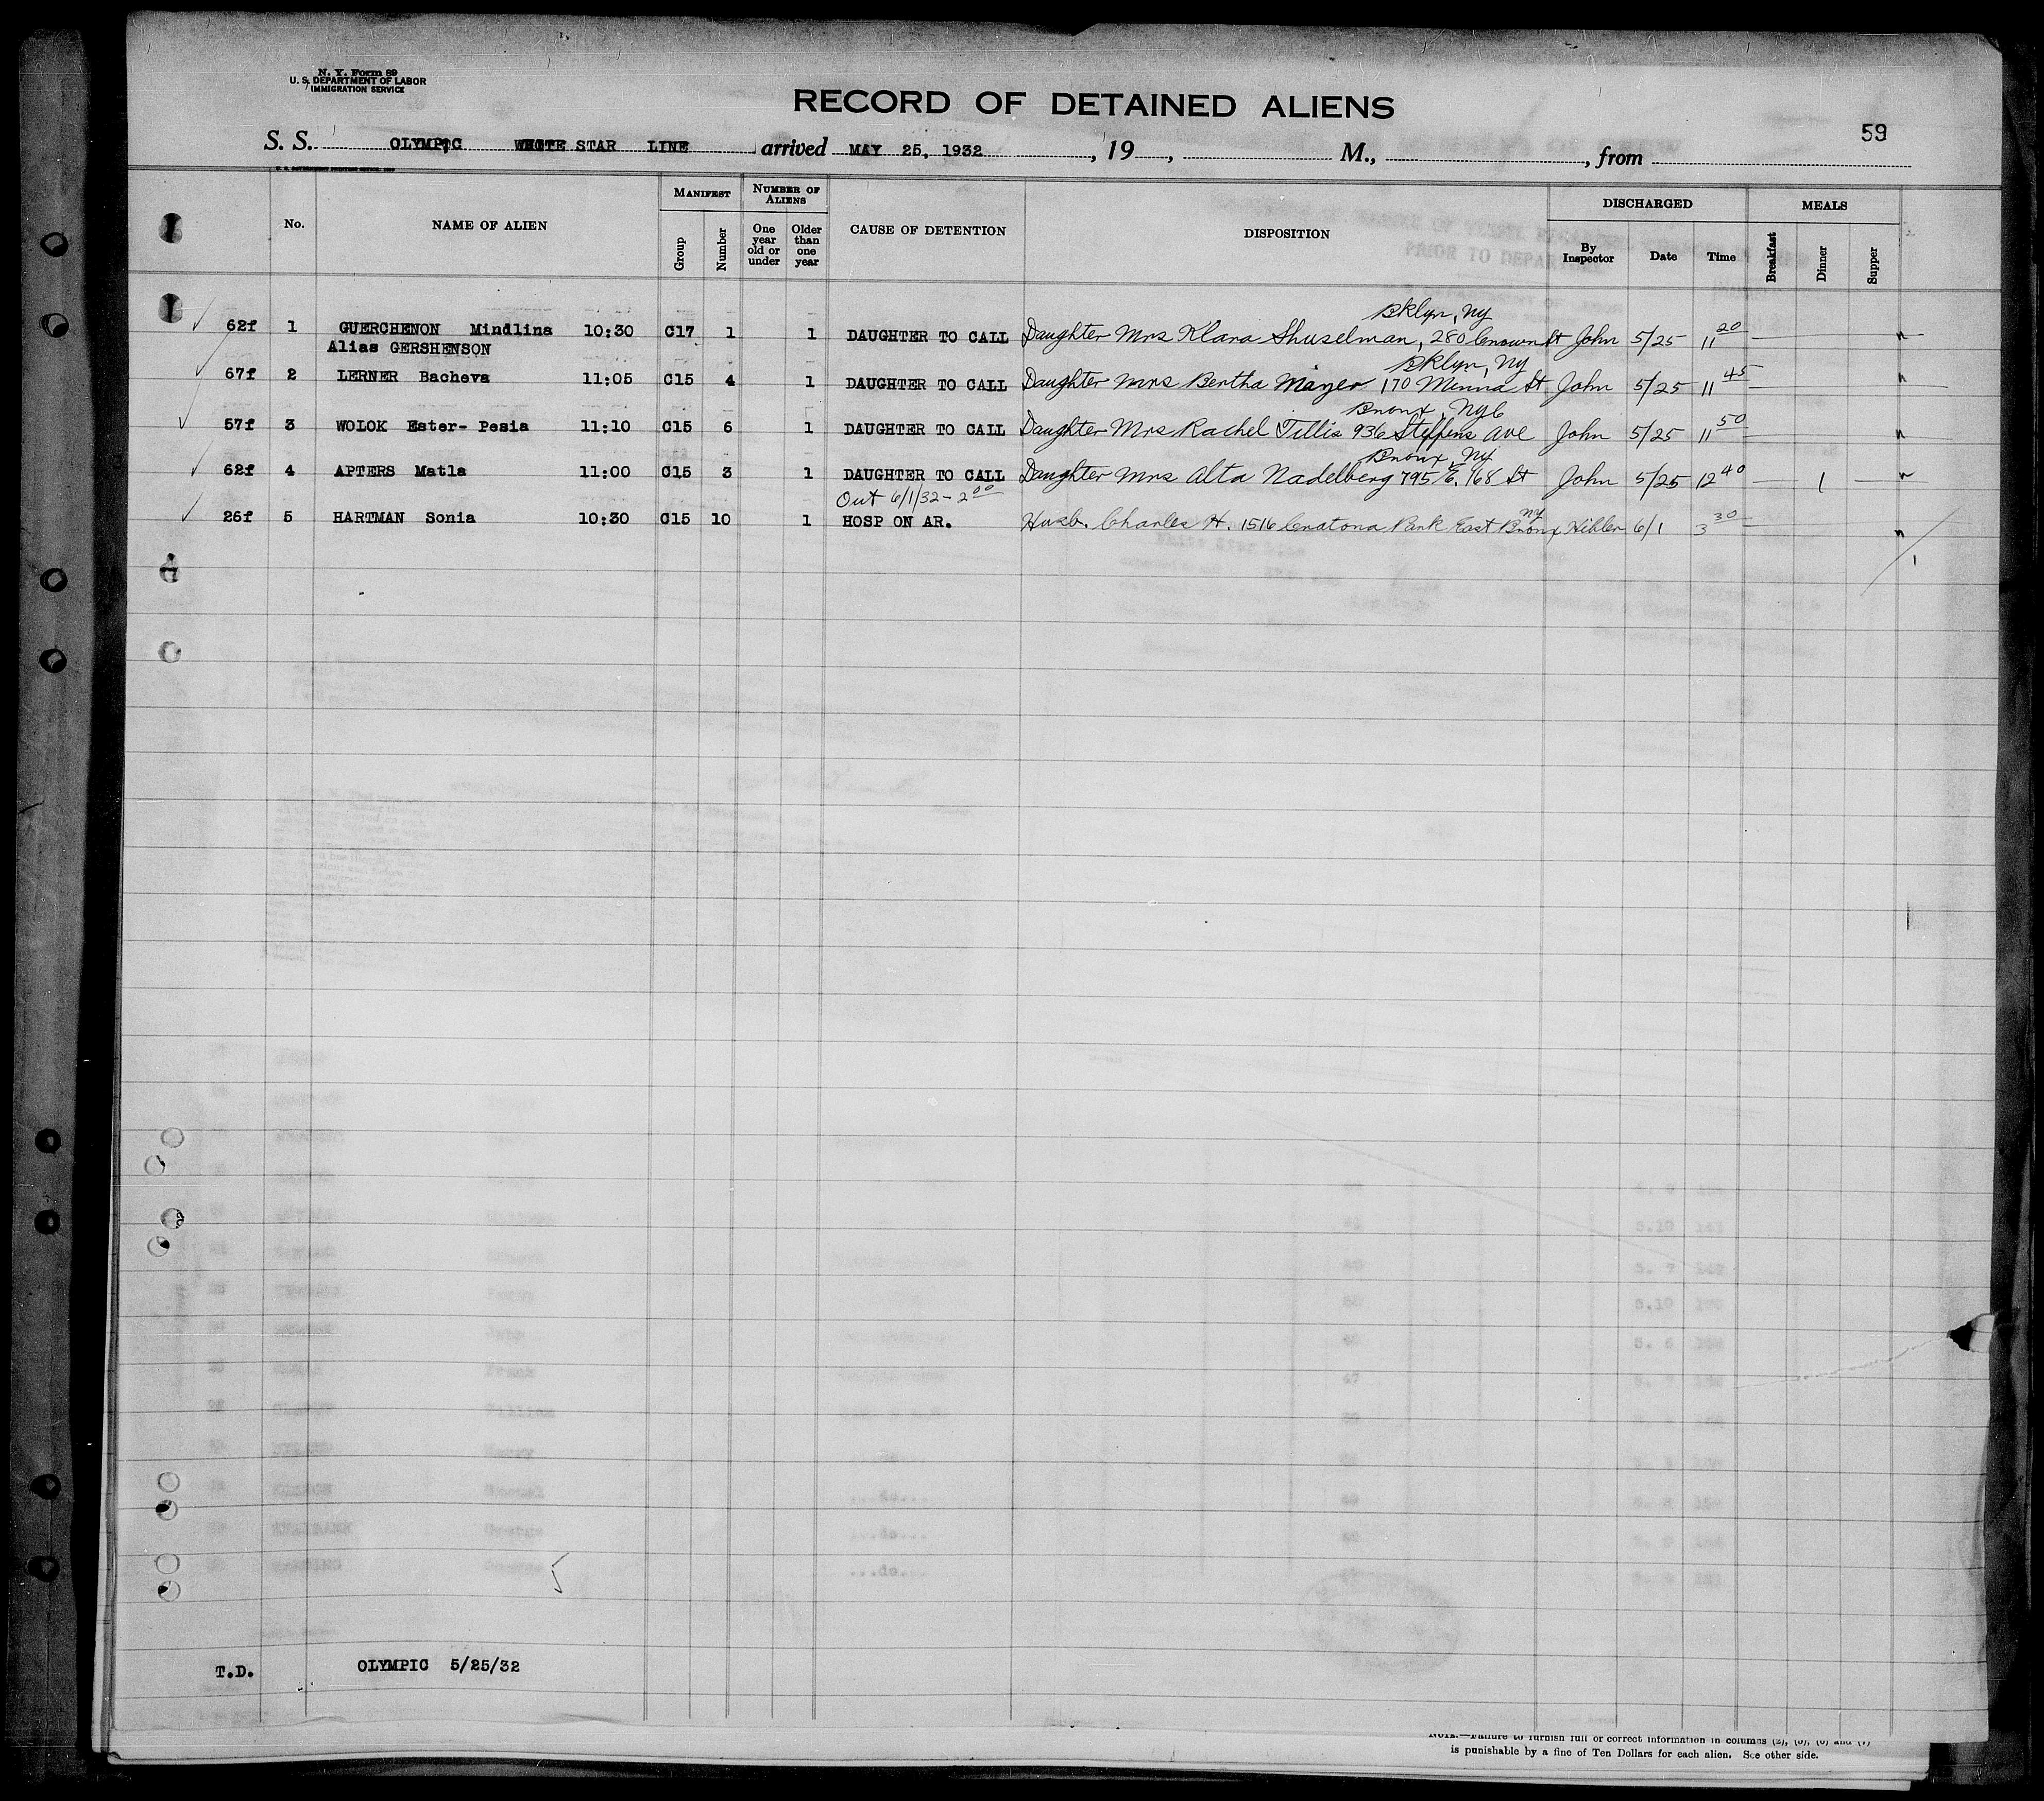 N. Y. Form 89
U. S. DEPARTMENT OF LABOR
IMMIGRATION SERVICE
RECORD OF DETAINED ALIENS
59
S. S. OLYMPIC WHITE STAR LINE arrived MAY 25, 1932, 19, M., , from
No. NAME OF ALIEN MANIFEST Group Number NUMBER OF ALIENS One year old or under Older than one year CAUSE OF DETENTION DISPOSITION DISCHARGED By Inspector Date Time MEALS Breakfast Dinner Supper
Bklyn, Ny
62f 1 GUERCHENON Mindlina 10:30 C17 1 1 DAUGHTER TO CALL Daughter Mrs Klara Shuselman, 280 Crown St John 5/25 11 20
Alias GERSHENSON
Bklyn, Ny
67f 2 LERNER Bacheva 11:05 C15 4 1 DAUGHTER TO CALL Daughter Mrs Bertha Mayer 170 Minna St John 5/25 11 45
Bronx, NyC
57f 3 WOLOK Ester- Pesia 11:10 C15 6 1 DAUGHTER TO CALL Daughter Mrs Rachel Tillis 936 Steffens Ave John 5/25 11 50
Bronx, Ny
62f 4 APTERS Matla 11:00 C15 3 1 DAUGHTER TO CALL Daughter Mrs Alta Nadelberg 795 E. 168 St John 5/25 12 40 1
Out 6/1/32 - 2 00
26f 5 HARTMAN Sonia 10:30 C15 10 1 HOSP ON AR. Husb. Charles H. 1516 Crotona Park East Bronx NY Hibler 6/1 3 30
T.D. OLYMPIC 5/25/32
NOTE.—Failure to furnish full or correct information in columns (2), (5), (6) and (7)
is punishable by a fine of Ten Dollars for each alien. See other side.